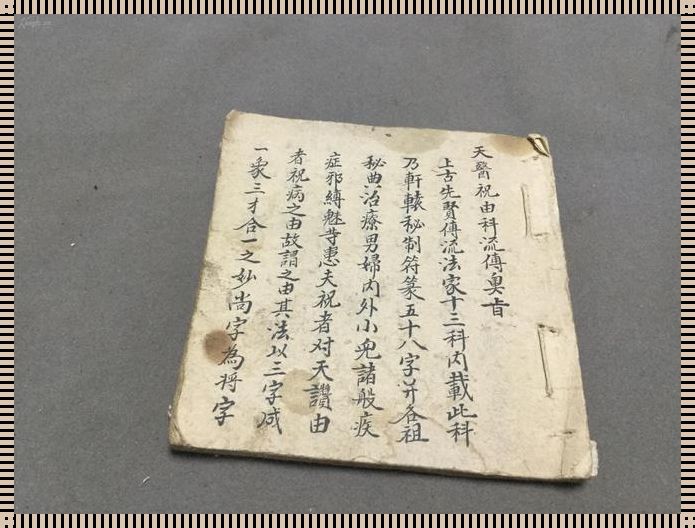 天醫祝由科流傳奥旨
上古先賢傳流法家十三科内載此科
乃軒轅秘制符篆五十八字并各祖
秘曲治療男婦内外小兒諸般疾
症邪縛魅等患夫祝者对天讚由
者祝病之由故謂之由其法以三字咸
一象三才合一之妙尚字為将字